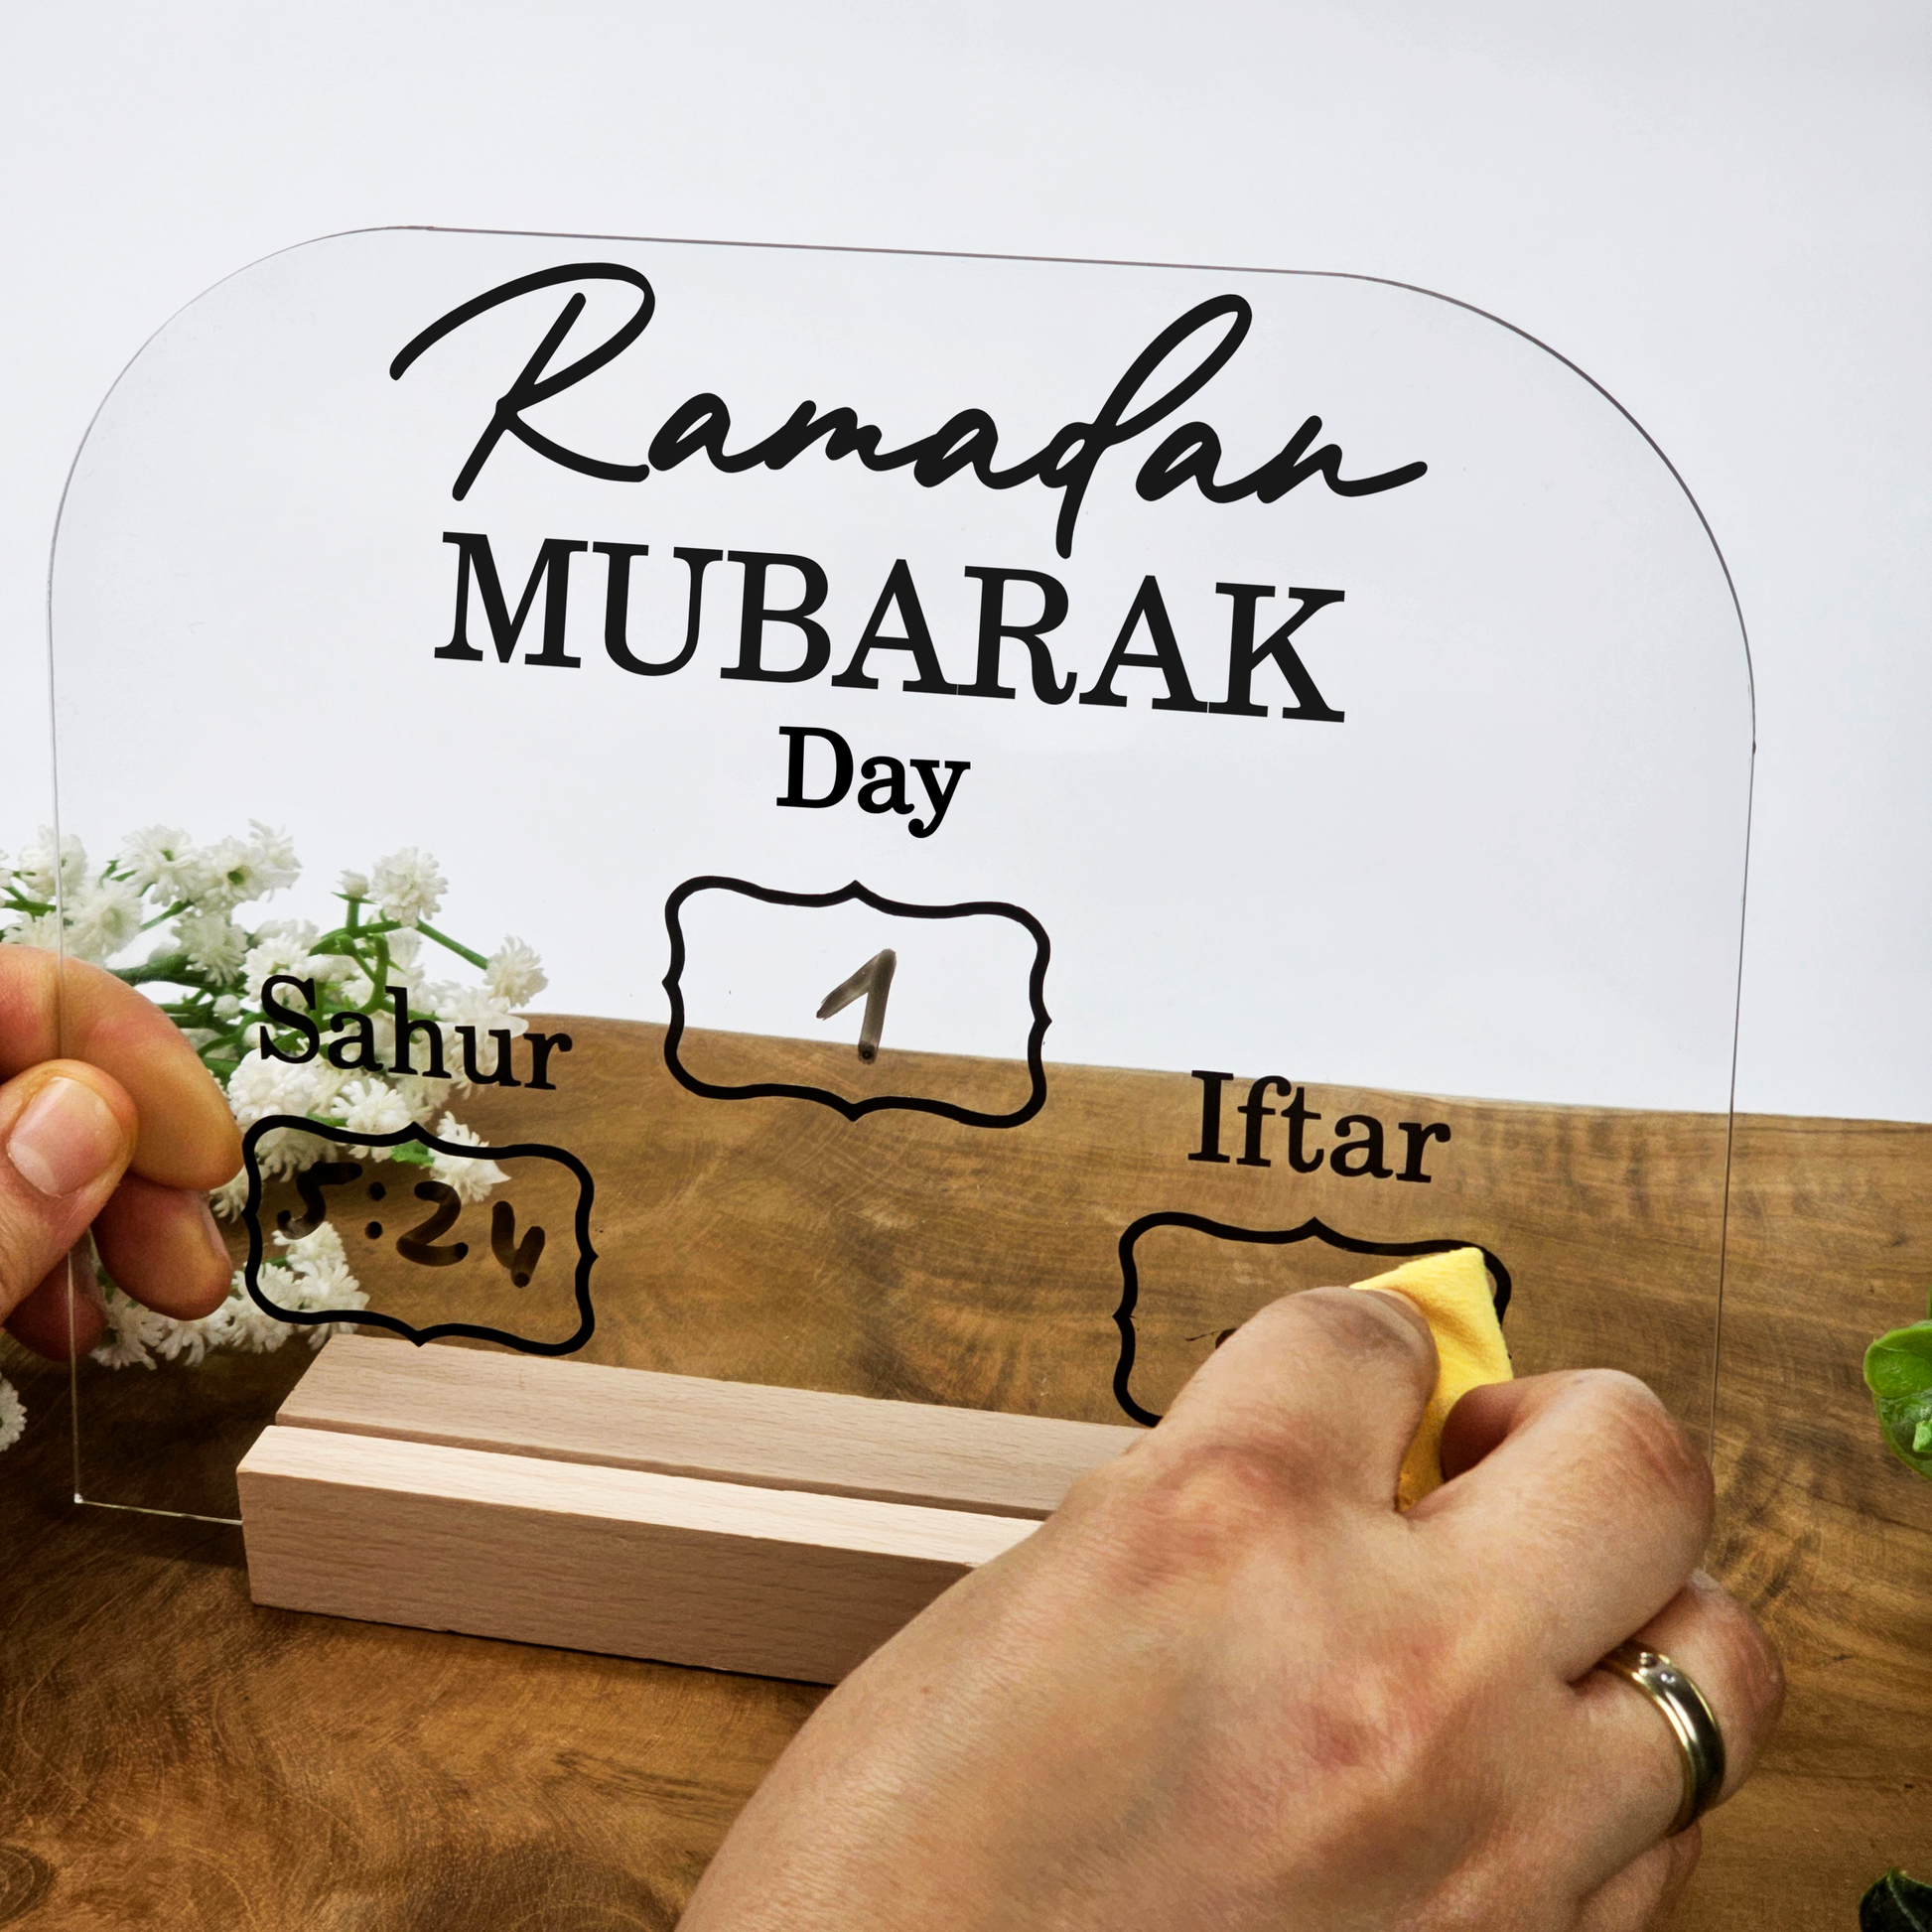 Ramadan
MUBARAK
Day
1
Sahur
5:24
Iftar